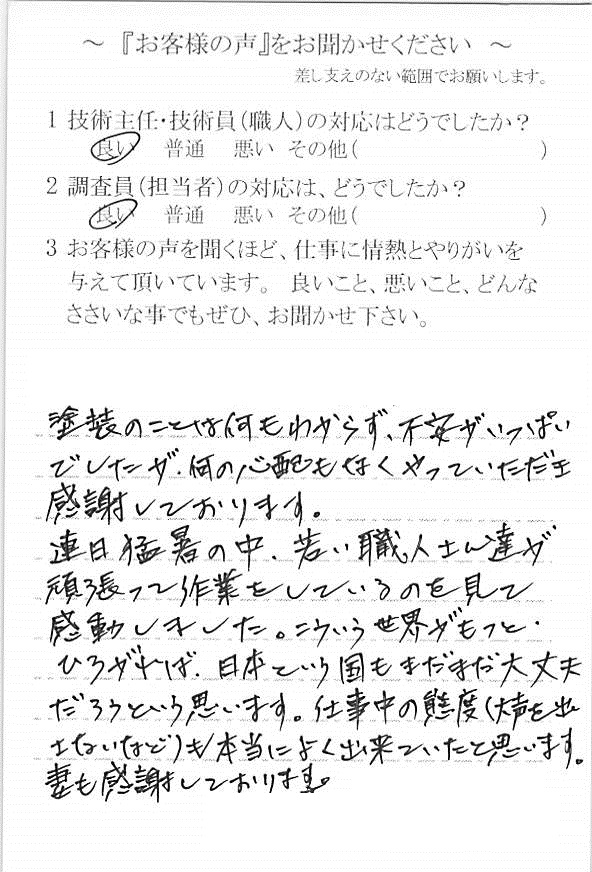 ～『お客様の声』をお聞かせください ～
差し支えのない範囲でお願いします。
1 技術主任・技術員(職人)の対応はどうでしたか?
良い 普通 悪い その他( )
2 調査員(担当者)の対応は、どうでしたか?
良い 普通 悪い その他( )
3 お客様の声を聞くほど、仕事に情熱とやりがいを
与えて頂いています。 良いこと、悪いこと、どんな
ささいな事でもぜひ、お聞かせ下さい。
塗装のことは何もわからず、不安がいっぱい
でしたが、何の心配もなくやっていただき
感謝しております。
連日猛暑の中、若い職人さん達が
頑張って作業をしているのを見て
感動しました。こういう世界がもっと、
ひろがれば、日本という国もまだまだ大丈夫
だろうという思います。仕事中の態度(大声を出
さないなど)も本当によく出来ていたと思います。
妻も感謝しております。